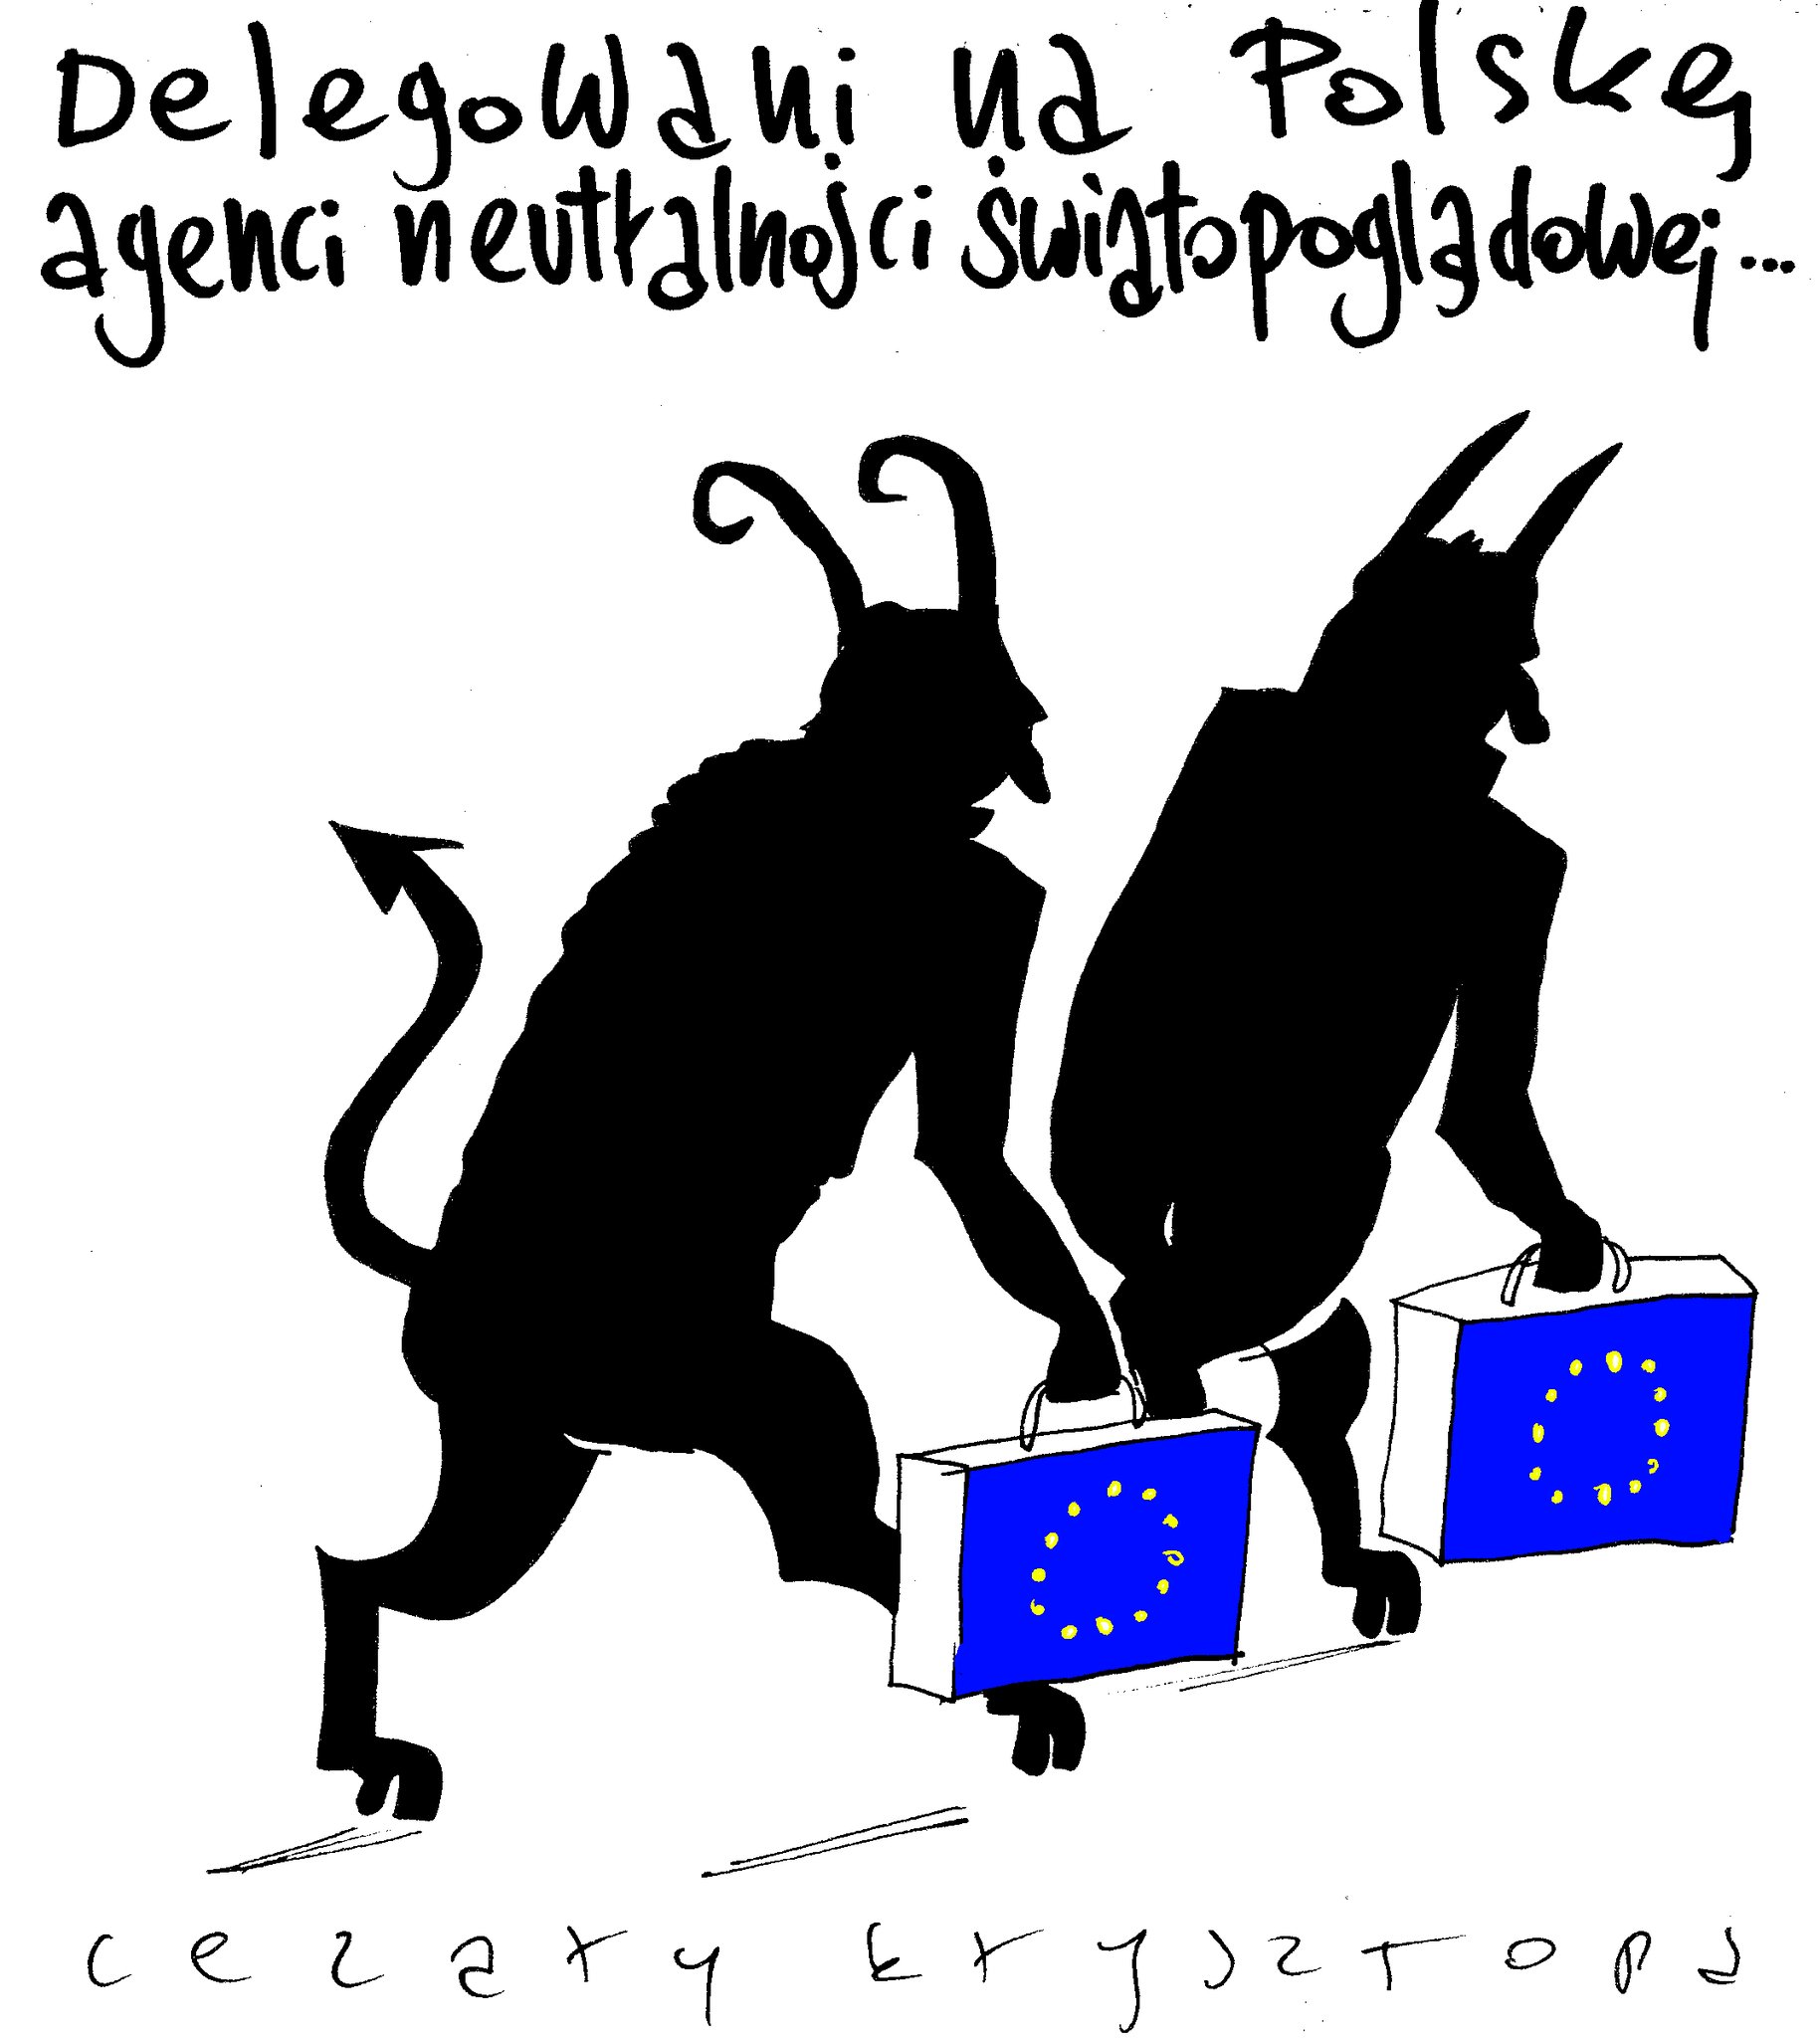 Delegowani na Polskę
agenci neutralności światopoglądowej...
cezary krysztopa